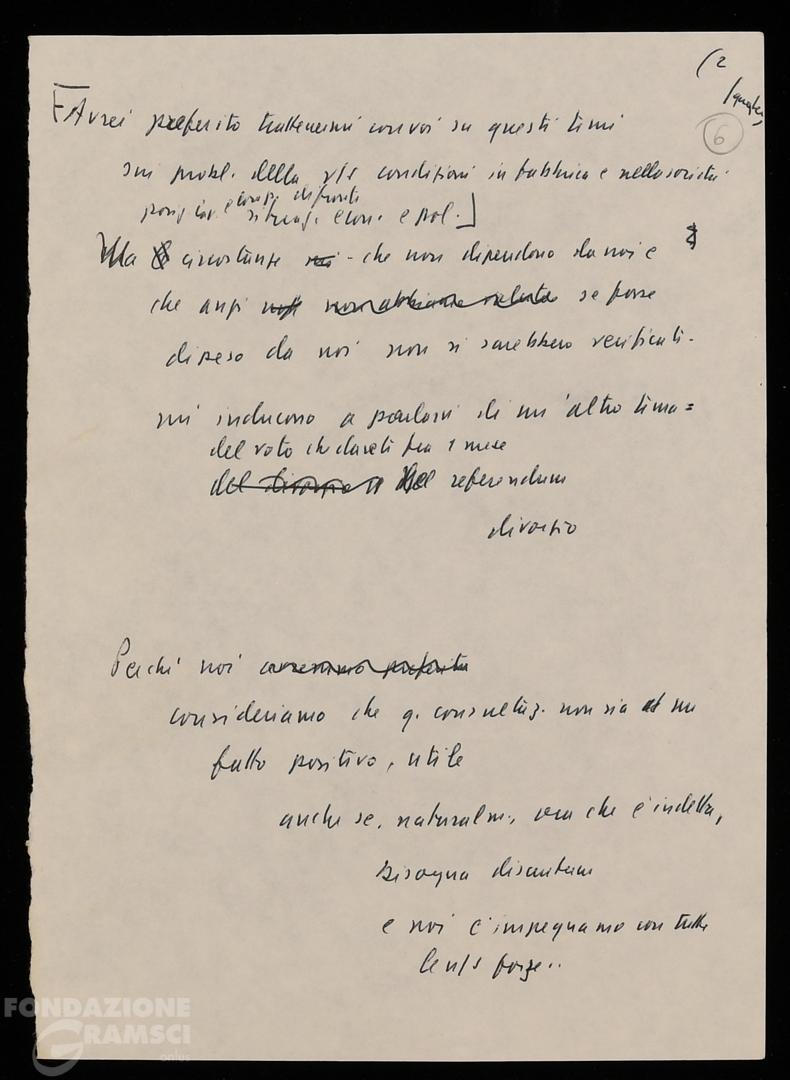 (2
6
[Avrei preferito trattenermi con voi su questi temi
sui probl. della v/s condizioni in fabbrica e nella società
di fronte
situaz. econ. e pol.]
Ma circostanze - che non dipendono da noi e
che anzi non abbiamo voluto se fosse
dipeso da noi non si sarebbero verificati -
mi inducono a parlarvi di un'altro tema =
del voto che darete fra 1 mese
del divorzio del referendum
divorzio
Perché noi avremmo preferito
consideriamo che q. consultaz. non sia un
fatto positivo, utile
anche se, naturalm., ora che è indetta,
bisogna discutere
e noi c'impegnamo con tutte
le n/s forze..
FONDAZIONE
GRAMSCI
onlus